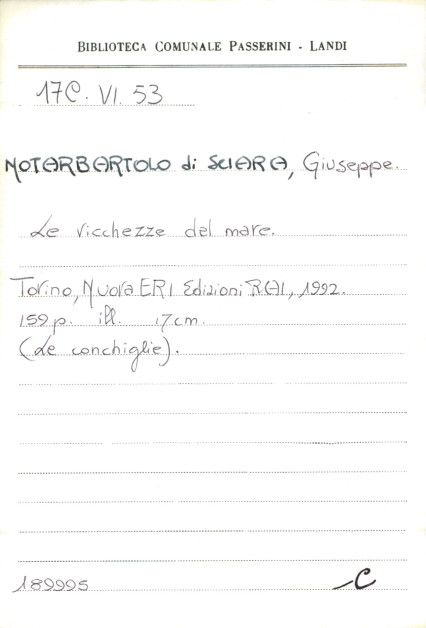 BIBLIOTECA COMUNALE PASSERINI - LANDI
17C. VI. 53
NOTARBARTOLO di SCIARA, Giuseppe.
Le ricchezze del mare.
Torino, Nuova ERI Edizioni RAI, 1992.
159 p. ill. 17 cm.
(Le conchiglie).
189995 C